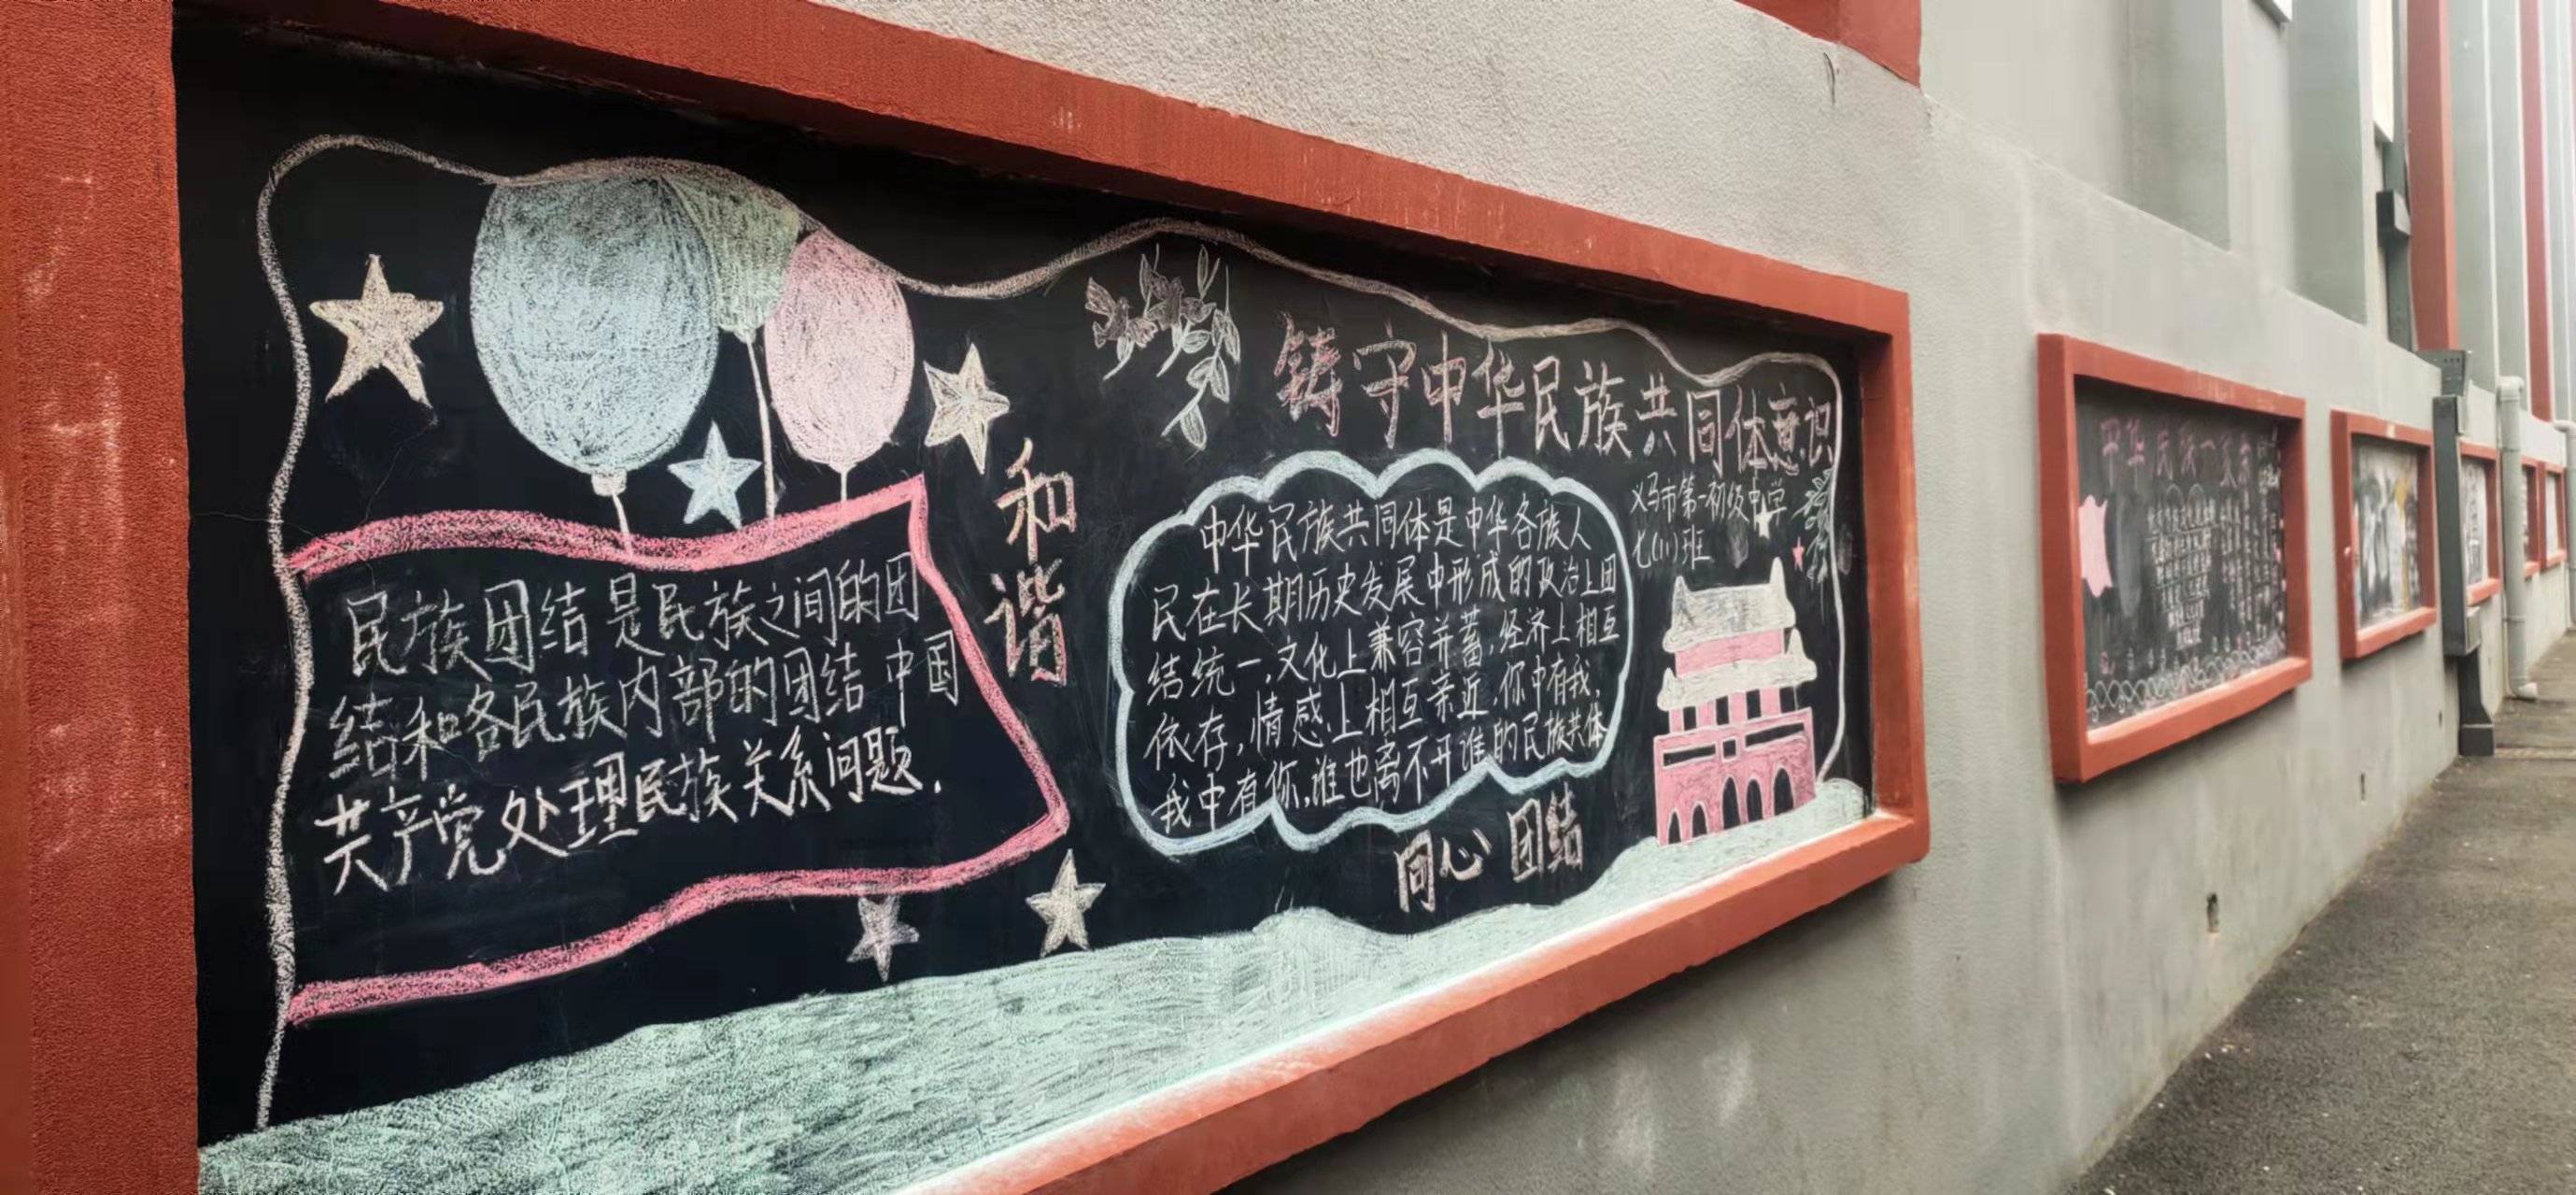 民族团结是民族之间的团
结和各民族内部的团结 中国
共产党处理民族关系问题.
和谐
铸守中华民族共同体意识
义马市第一初级中学
七(11)班
中华民族共同体是中华各族人
民在长期历史发展中形成的政治上团
结统一,文化上兼容并蓄,经济上相互
依存,情感上相互亲近,你中有我,
我中有你,谁也离不开谁的民族共体
同心 团结